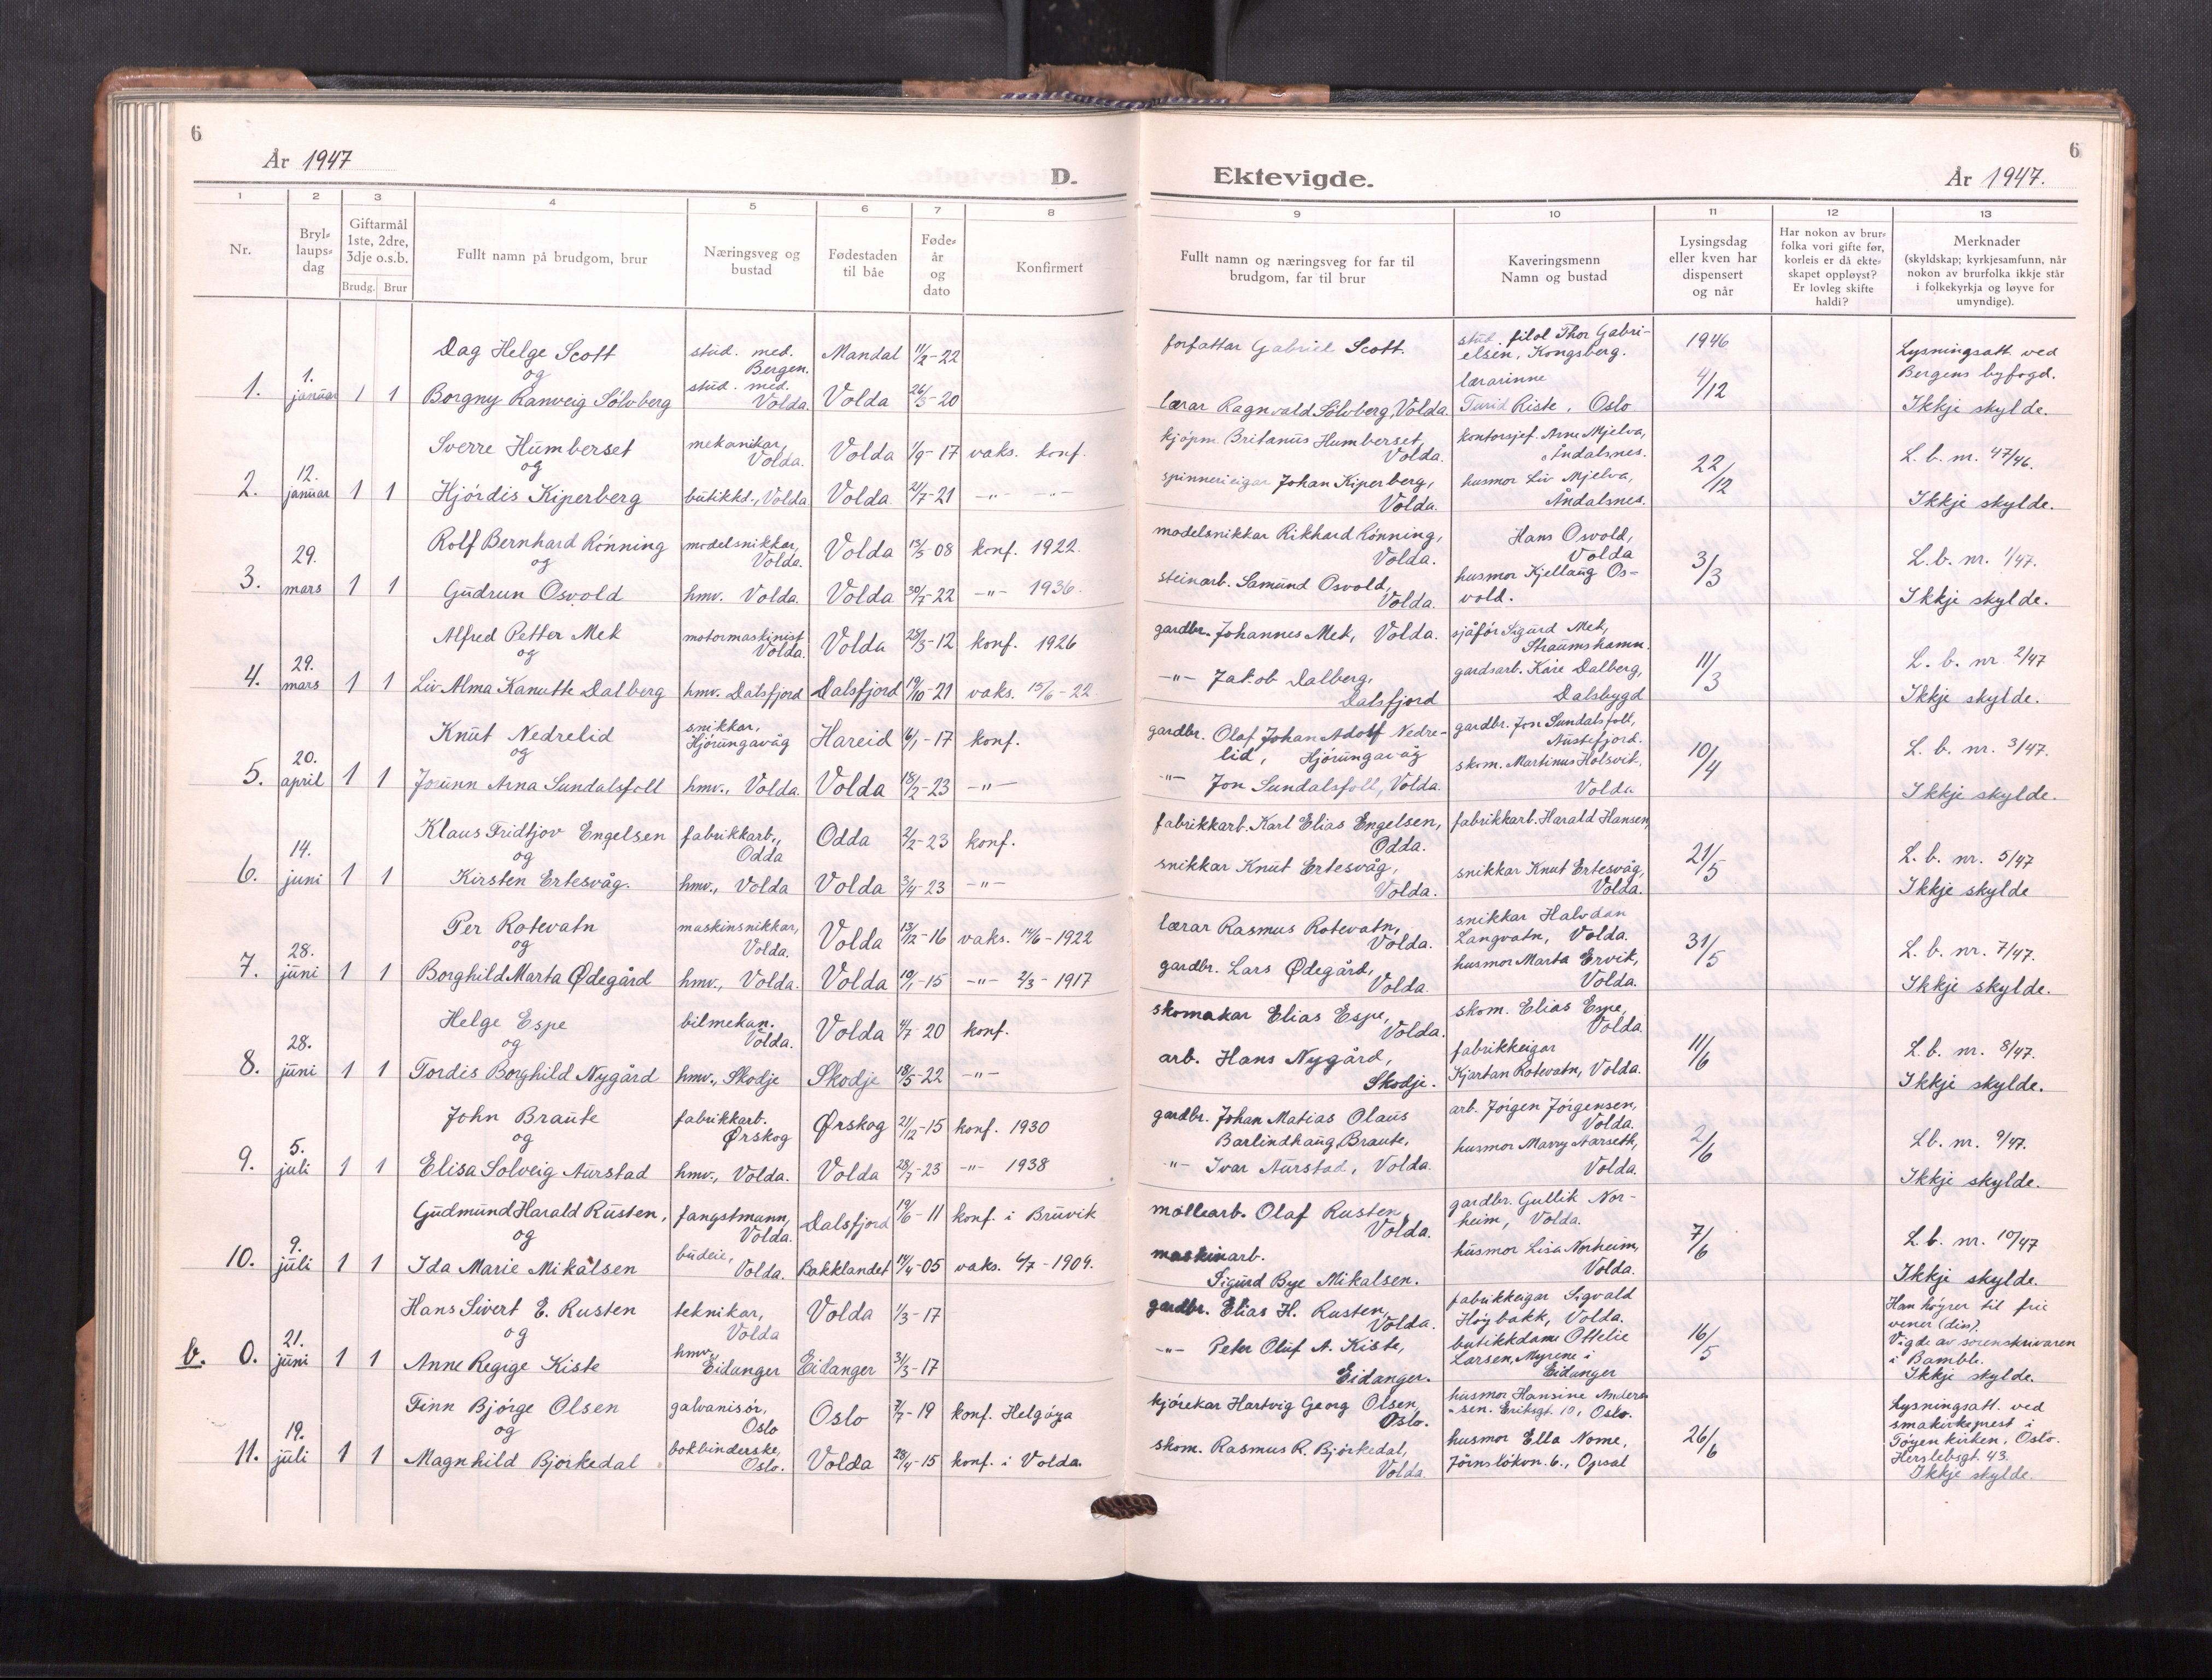 6
År 1947
D.
1 2 3 4 5 6 7 8
Nr.
Bryl-
laups-
dag
Giftarmål
1ste, 2dre,
3dje o.s.b.
Brudg. Brur
Fullt namn på brudgom, brur
Næringsveg og
bustad
Fødestaden
til båe
Føde-
år
og
dato
Konfirmert
Dag Helge Scott stud. med. Mandal 11/2-22
og Bergen.
1. 1. januar 1 1 Borgny Ranveig Sólvberg stud. med. Volda. Volda 26/3-20
Sverre Humberset mekanikar, Volda. Volda 1/9-17 vaks. konf.
og
2. 12. januar 1 1 Hjórdis Kiperberg butikkd., Volda Volda 21/7-21 -"- -"-
Rolf Bernhard Rónning modelsnikkar, Volda. Volda 13/5-08 konf. 1922.
og
3. 29. mars 1 1 Gudrun Osvold hmv. Volda. Volda 30/7-22 -"- 1936.
Alfred Petter Mek motormaskinist Volda. Volda 28/3-12 konf. 1926
og
4. 29. mars 1 1 Liv Alma Kanutte Dalberg hmv. Dalsfjord Dalsfjord 19/10-21 vaks. 15/6-22
Knut Nedrelid snikkar, Hjórungavåg Hareid 6/1-17 konf.
og
5. 20. april 1 1 Jorunn Arna Sundalsfoll hmv., Volda. Volda 18/2-23 -"-
Klaus Fridtjov Engelsen fabrikkarb., Odda Odda 2/2-23 konf.
og
6. 14. juni 1 1 Kirsten Ertesvåg. hmv., Volda Volda 3/4-23 -"-
Per Rotevatn maskinsnikkar, Volda. Volda 13/12-16 vaks. 14/6-1922
og
7. 28. juni 1 1 Borghild Marta Ødegård hmv., Volda. Volda 19/1-15 -"- 2/3-1917
Helge Espe bilmekan. Volda. Volda 4/7-20 konf.
og
8. 28. juni 1 1 Tordis Borghild Nygård hmv., Skodje Skodje 18/5-22 -"-
John Braute fabrikkarb. Ørskog Ørskog 21/12-15 konf. 1930
og
9. 5. juli 1 1 Elisa Solveig Aurstad hmv., Volda. Volda 28/7-23 -"- 1938
Gudmund Harald Rusten, fangstmann, Volda. Dalsfjord 19/6-11 konf. i Bruvik
og
10. 9. juli 1 1 Ida Marie Mikalsen budeie, Volda. Bakklandet 14/4-05 vaks. 4/7-1909.
Hans Sivert E. Rusten teknikar, Volda Volda 1/3-17
og
b. 0. 21. juni 1 1 Anne Regige Kiste hmv. Eidanger Eidanger 31/3-17
Finn Bjórge Olsen galvanisór, Oslo Oslo 7/7-19 konf. Helgóya
og
11. 19. juli 1 1 Magnhild Bjórkedal bokbinderske, Oslo. Volda 28/4-15 konf. i Volda.
Ektevigde.
6
År 1947.
9 10 11 12 13
Fullt namn og næringsveg for far til
brudgom, far til brur
Kaveringsmenn
Namn og bustad
Lysingsdag
eller kven har
dispensert
og når
Har nokon av brur-
folka vori gifte før,
korleis er då ekte-
skapet oppløyst?
Er lovleg skifte
haldi?
Merknader
(skyldskap; kyrkjesamfunn, når
nokon av brurfolka ikkje står
i folkekyrkja og løyve for
umyndige).
forfattar Gabriel Scott. stud. filol Thor Gabri-
elsen, Kongsberg. 1946 Lysningsatt. ved
Bergens byfogd.
lærar Ragnvald Sólvberg, Volda. lærarinne
Turid Riste, Oslo 4/12 Ikkje skylde.
kjópm. Britanus Humberset, Volda. kontorsjef. Arne Mjelva,
Åndalsnes. L. b. nr. 47/46.
spinnerieigar Johan Kiperberg, Volda. husmor Liv Mjelva,
Åndalsnes. 22/12 Ikkje skylde.
modelsnikkar Rikhard Rónning, Volda. Hans Osvold,
Volda L. b. nr. 1/47.
steinarb. Samund Osvold, Volda. husmor Kjellaug Os-
vold. 3/3 Ikkje skylde.
gardbr. Johannes Mek, Volda. sjåfór Sigurd Mek,
Straumshamn. L. b. nr. 2/47
-"- Jakob Dalberg, Dalsfjord gardsarb. Kåre Dalberg,
Dalsbygd 11/3 Ikkje skylde.
gardbr. Olaf Johan Adolf Nedre-
lid, Hjórungavåg gardbr. Jon Sundalsfoll,
Austefjord. L. b. nr. 3/47.
-"- Jon Sundalsfoll, Volda. skom. Martinus Holsvik,
Volda 10/4 Ikkje skylde.
fabrikkarb. Karl Elias Engelsen, Odda. fabrikkarb. Harald Hansen, L. b. nr. 5/47
snikkar Knut Ertesvåg, Volda. snikkar Knut Ertesvåg,
Volda. 21/5 Ikkje skylde
lærar Rasmus Rotevatn, Volda. snikkar Halvdan
Langvatn, Volda. L. b. nr. 7/47.
gardbr. Lars Ødegård, Volda. husmor Marta Ervik,
Volda. 31/5 Ikkje skylde.
skomakar Elias Espe, Volda. skom. Elias Espe,
Volda. L. b. nr. 8/47.
arb. Hans Nygård, Skodje. fabrikkeigar
Kjartan Rotevatn, Volda. 11/6 Ikkje skylde.
gardbr. Johan Matias Olaus
Barlindhaug Braute, arb. Jórgen Jórgensen,
Volda. L. b. nr. 9/47.
-"- Ivar Aurstad, Volda. husmor Marry Aarseth,
Volda. 2/6 Ikkje skylde.
mólliarb. Olaf Rusten, Volda. gardbr. Gullik Nor-
heim, Volda. L. b. nr. 10/47
maskinarb.
Sigurd Bye Mikalsen. husmor Lisa Norheim,
Volda. 7/6 Ikkje skylde.
gardbr. Elias H. Rusten, Volda. fabrikkeigar Sigvald
Hógbakk, Volda. Han hóyrer til frie
vener (din).
-"- Peter Oluf A. Kiste,
Eidanger. butikkdame Ottelie
Larsen, Myrene i
Eidanger 16/5 Vigde av sorenskrivaren
i Bamble.
Ikkje skylde.
kjórekar Hartvig Georg Olsen,
Oslo. husmor Hansine Ander-
sen. Eriksgt. 10, Oslo. Lysningsatt. ved
småkirkeprest i
skom. Rasmus R. Bjórkedal,
Volda. husmor Ella Nome,
6., Opsal 26/6 Tóyenkirken, Oslo.
Herslebsgt. 43.
Ikkje skylde.